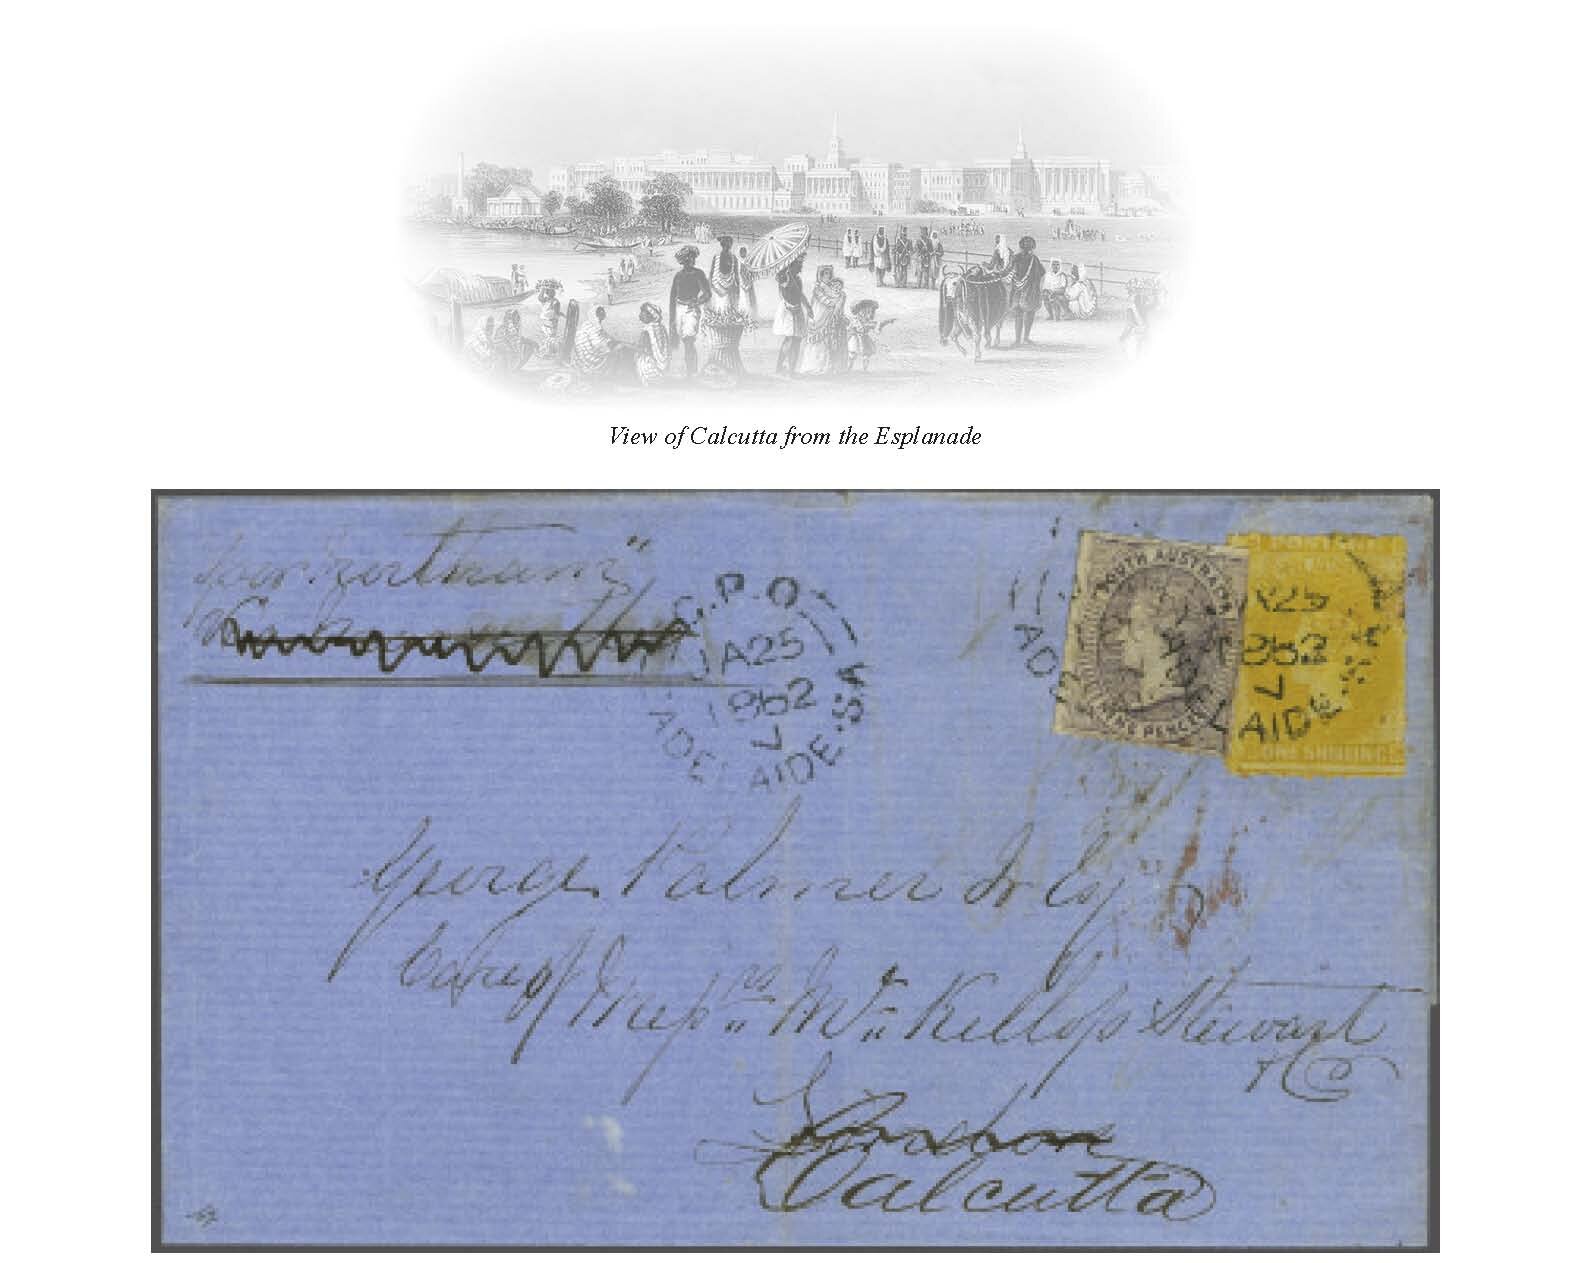 View of Calcutta from the Esplanade
G.P.O.
JA 25
1862
ADELAIDE.S.A
SOUTH AUSTRALIA
PENCE
POSTAGE
ONE SHILLING
JA 25
1862
ADELAIDE.S.A
George Palmer Jr Esq
Care of Messrs McKellop Stewart
& Co
London
Calcutta